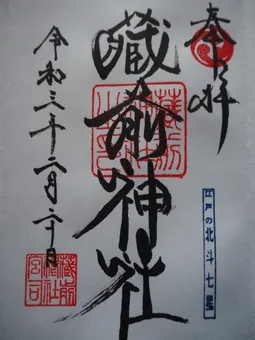 奉拝
江戸の北斗七星
藏前神社
蔵前神社宮司
令和三年二月二十日